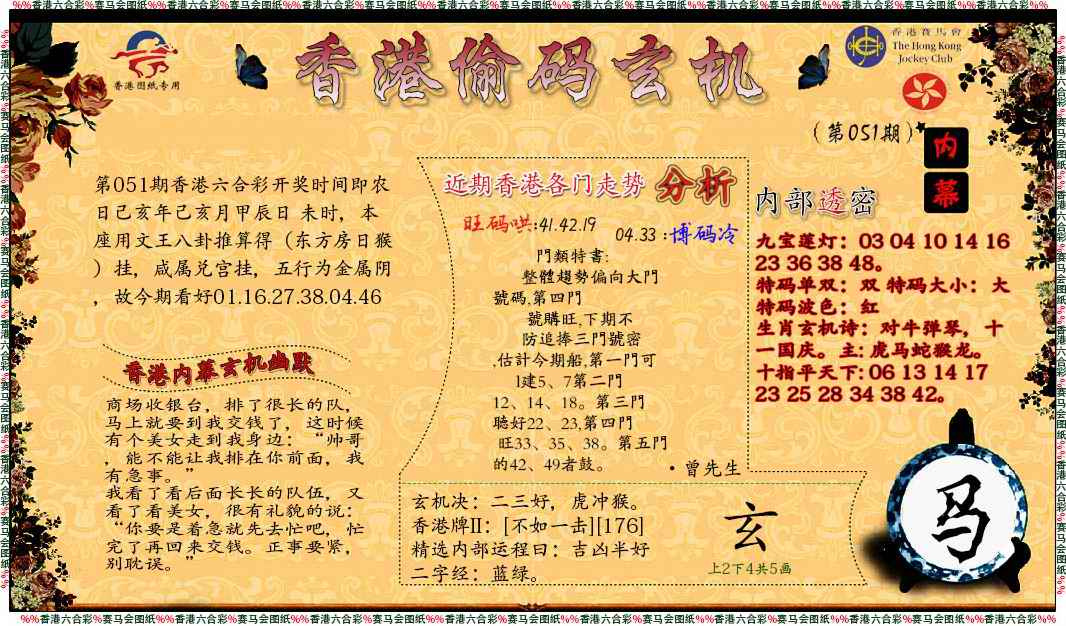 %%香港六合彩%赛马会图纸%%香港六合彩%赛马会图纸%%香港六合彩%赛马会图纸%%香港六合彩%赛马会图纸%%香港六合彩%赛马会图纸%%香港六合彩%赛马会图纸%%香港六合彩%%
香港图纸专用
香港偷码玄机
香港賽馬會
The Hong Kong
Jockey Club
(第051期)
内
幕
第051期香港六合彩开奖时间即农
日己亥年己亥月甲辰日 未时，本
座用文王八卦推算得（东方房日猴
）挂，咸属兑宫挂，五行为金属阴
，故今期看好01.16.27.38.04.46
香港内幕玄机幽默
商场收银台，排了很长的队，
马上就要到我交钱了，这时候
有个美女走到我身边：“帅哥
，能不能让我排在你前面，我
有急事。”
我看了看后面长长的队伍，又
看了看美女，很有礼貌的说：
“你要是着急就先去忙吧，忙
完了再回来交钱。正事要紧，
别耽误。”
近期香港各门走势 分析
旺码哄:41.42.19
04.33 :博码冷
門類特書:
整體趨勢偏向大門
號碼,第四門
號購旺,下期不
防追捧三門號密
,估計今期船,第一門可
1建5、7第二門
12、14、18。第三門
聽好22、23,第四門
旺33、35、38。第五門
的42、49者鼓。
•曾先生
玄机决：二三好，虎冲猴。
香港牌II：[不如一击][176]
精选内部运程曰：吉凶半好
二字经：蓝绿。
玄
上2下4共5画
内部透密
九宝莲灯：03 04 10 14 16
23 36 38 48。
特码单双：双 特码大小：大
特码波色：红
生肖玄机诗：对牛弹琴，十
一国庆。主: 虎马蛇猴龙。
十指平天下: 06 13 14 17
23 25 28 34 38 42。
马
%%香港六合彩%赛马会图纸%%香港六合彩%赛马会图纸%%香港六合彩%赛马会图纸%%香港六合彩%赛马会图纸%%香港六合彩%赛马会图纸%%香港六合彩%赛马会图纸%%香港六合彩%%